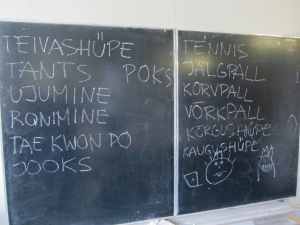 TEIVASHÜPE
TANTS POKS
UJUMINE
RONIMINE
TAE KWON DO
JOOKS
TENNIS
JALGPALL
KORVPALL
VÕRKPALL
KÕRGUSHÜPE
KAUGUSHÜPE